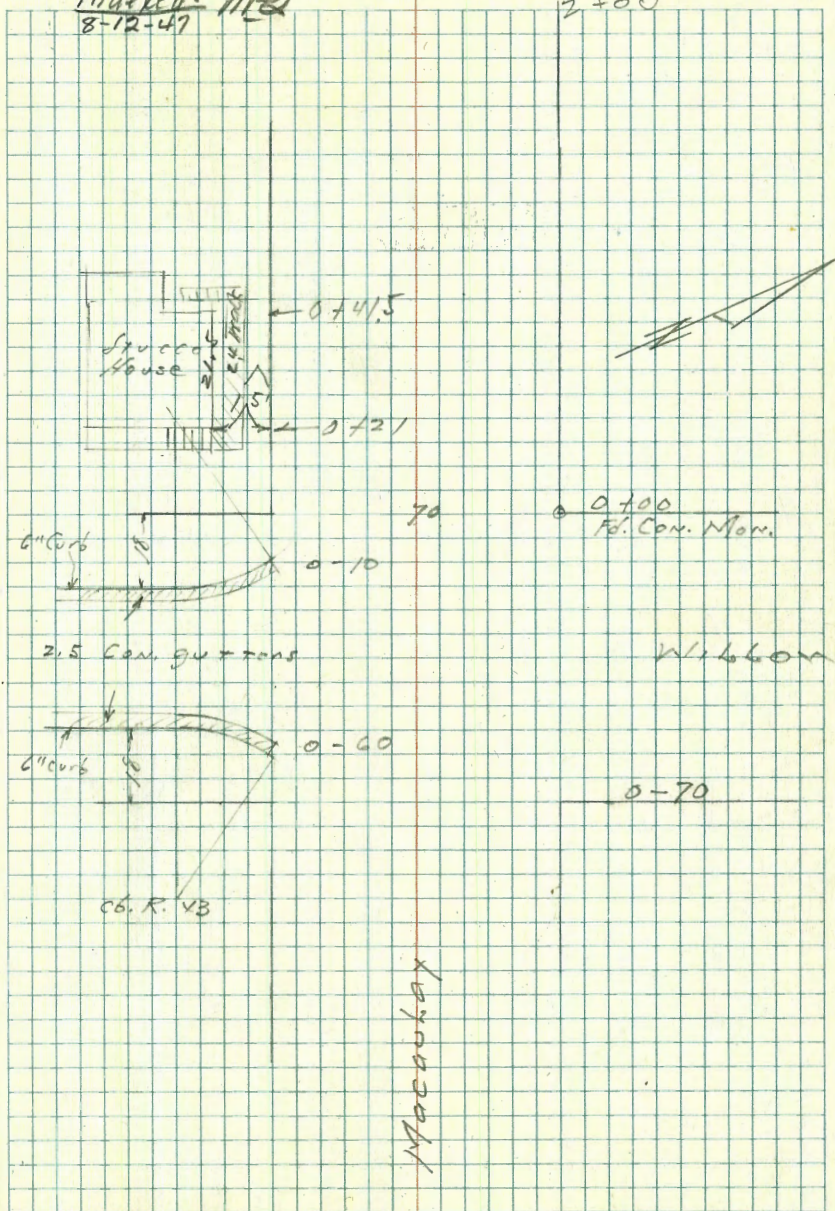 8-12-47
2+00
0+41.5
Stucco
House
21.5
2.4 Walk
5'
0+21
70
0+00
Fd. Con. Mon.
6" Curb
18
0-10
2.5 Con. gutters
Willow
0-60
6" Curb
18
0-70
cb. R. 43
Macaulay